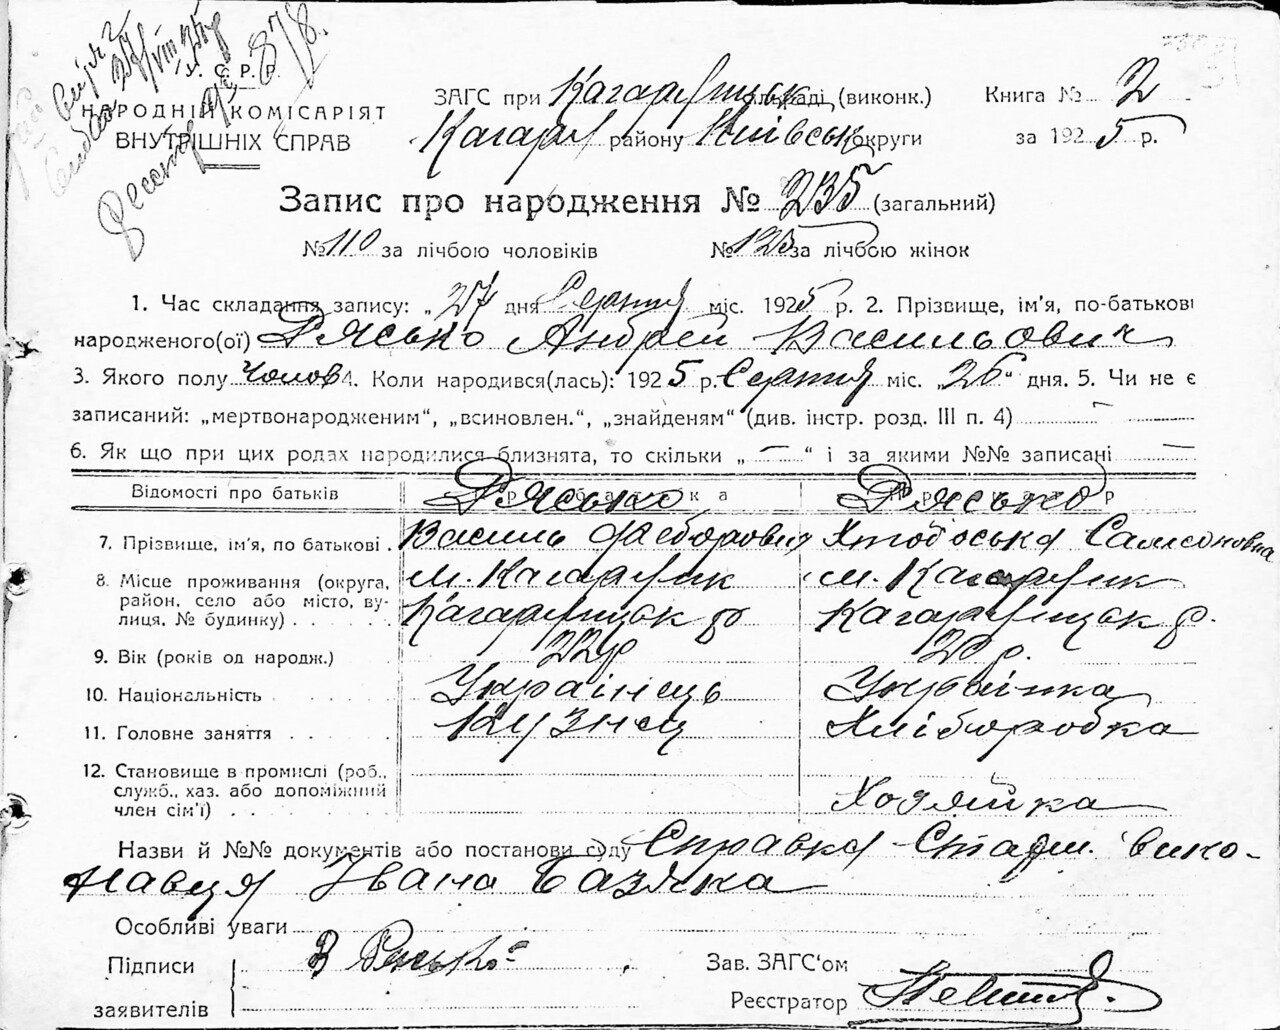 У.С.Р.Р.
НАРОДНІЙ КОМІСАРІЯТ
ВНУТРІШНІХ СПРАВ
ЗАГС при Кагарлицьк. сільраді (виконк.) Книга № 2
Кагарл району Київськ округи за 1925 р.
Запис про народження № 235 (загальний)
№ 110 за лічбою чоловіків № 125 за лічбою жінок
1. Час складання запису: „27 дня Серпня міс. 1925 р. 2. Прізвище, ім'я, по-батькові
народженого(ої) Рясько Андрей Васильович
3. Якого полу Чолов 4. Коли народився(лась): 1925 р. Серпня міс. „26" дня. 5. Чи не є
записаний: „мертвонародженим", „всиновлен.", „знайденям" (див. інстр. розд. III п. 4) —
6. Як що при цих родах народилися близнята, то скільки „ — " і за якими №№ записані —
Відомості про батьків Про батька Про матір
Рясько Рясько
7. Прізвище, ім'я, по батькові . Василь Федорович Самсоновна
8. Місце проживання (округа, м. Кагарлик м. Кагарлик
район, село або місто, ву-
лиця, № будинку) . . . . . Кагарлицьк р Кагарлицьк р.
9. Вік (років од народж.) 22 р 20 р.
10. Національність Українець Українка
11. Головне заняття . . . . Кузнец Хліборобка
12. Становище в промислі (роб.,
служб., хаз. або допоміжний
член сім'ї) . . . . . . . Хозяйка
Назви й №№ документів або постанови суду Справка вико-
навця Івана Базяка
Особливі уваги
Підписи В Рясько
заявителів
Зав. ЗАГС'ом
Реєстратор